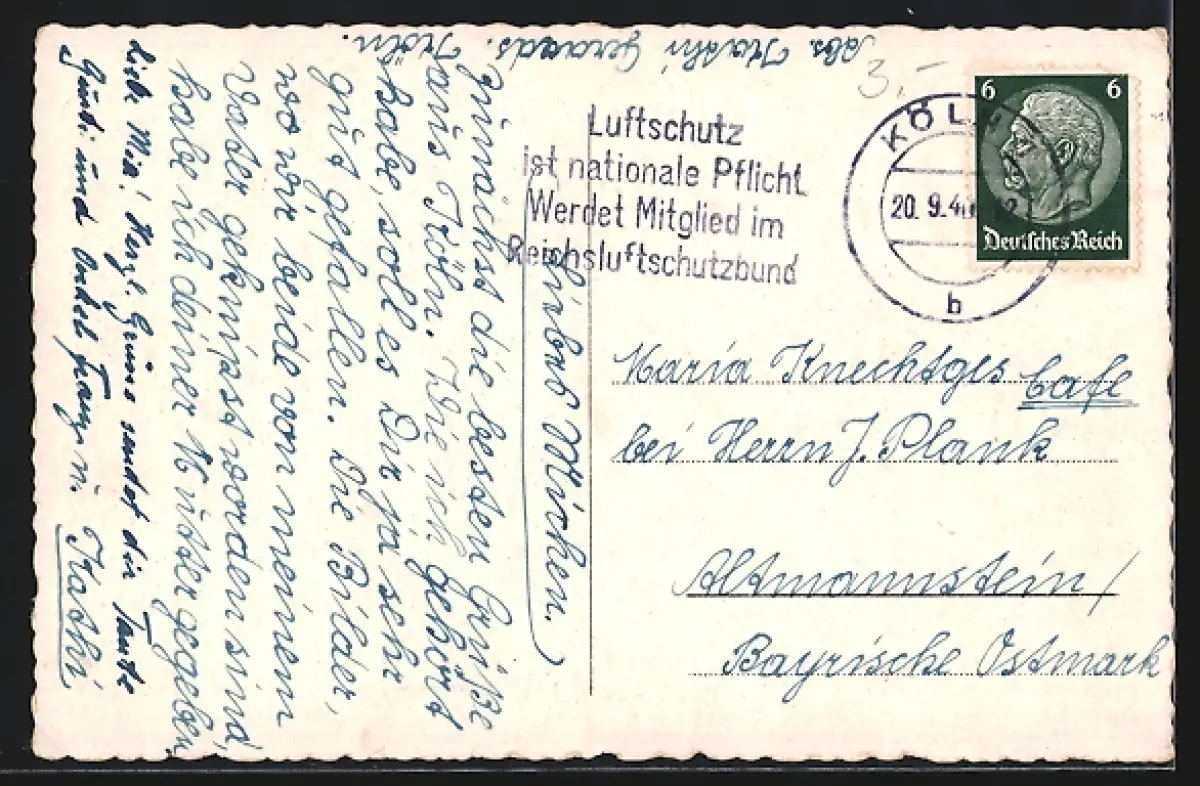 Abs. Kathi Geraads. Köln.
3.-
Luftschutz
ist nationale Pflicht
Werdet Mitglied im
Reichsluftschutzbund
KÖLN
20. 9. 40 12
b
6 6
Deutsches Reich
Maria Knechtges Cafe
bei Herrn J. Plank
Altmannstein /
Bayrische Ostmark
Liebes Michen.
zunächst die besten Grüße
aus Köln. Wie ich gehört
habe, soll es Dir ja sehr
gut gefallen. Die Bilder,
wo wir beide von meinem
Vater geknipst worden sind,
habe ich deiner Mutter gegeben
Liebe Mia! Herzl. Grüsse sendet dir Tante
und Onkel Franz u. Kathi